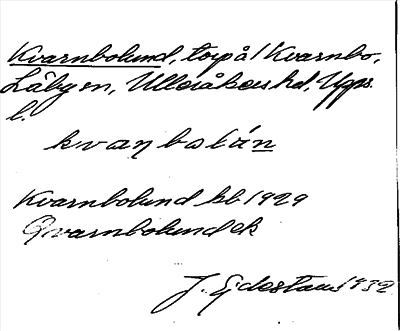 Kvarnbolund, torp å/ Kvarnbo,
Läby sn, Ulleråkers hd, Upps.
l.
kvaɳbolún
Kvarnbolund kb 1929
Qvarnbolund ek
J. Ejdestam 1932